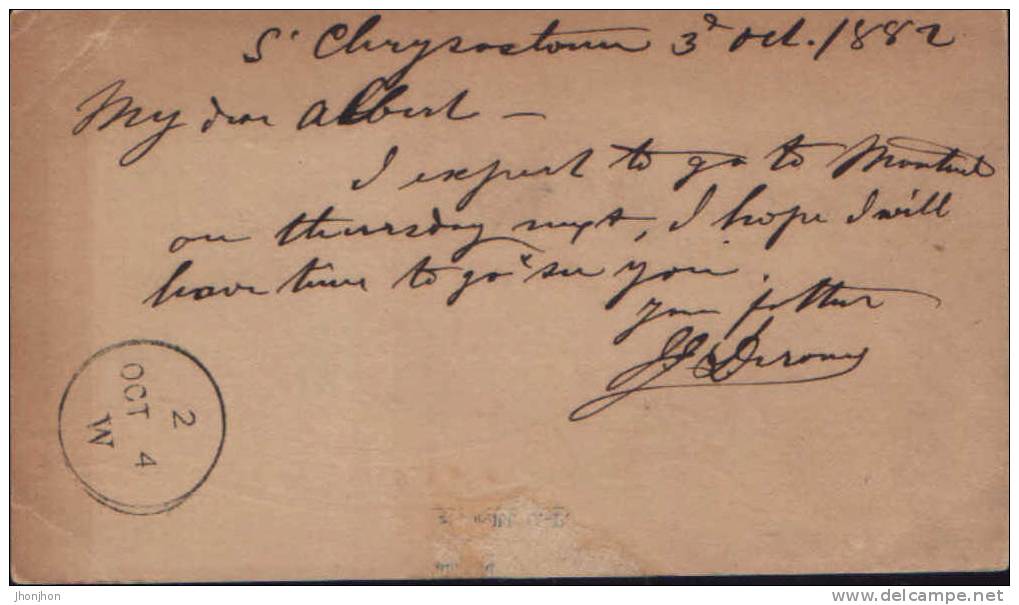 St Chrysostom 3d Oct. 1882
My dear Albert —
I expect to go to Montreal
on thursday next, I hope I will
have time to go see you.
your father
JJ Derome
2
OCT 4
W
jhonjhon
www.delcampe.net